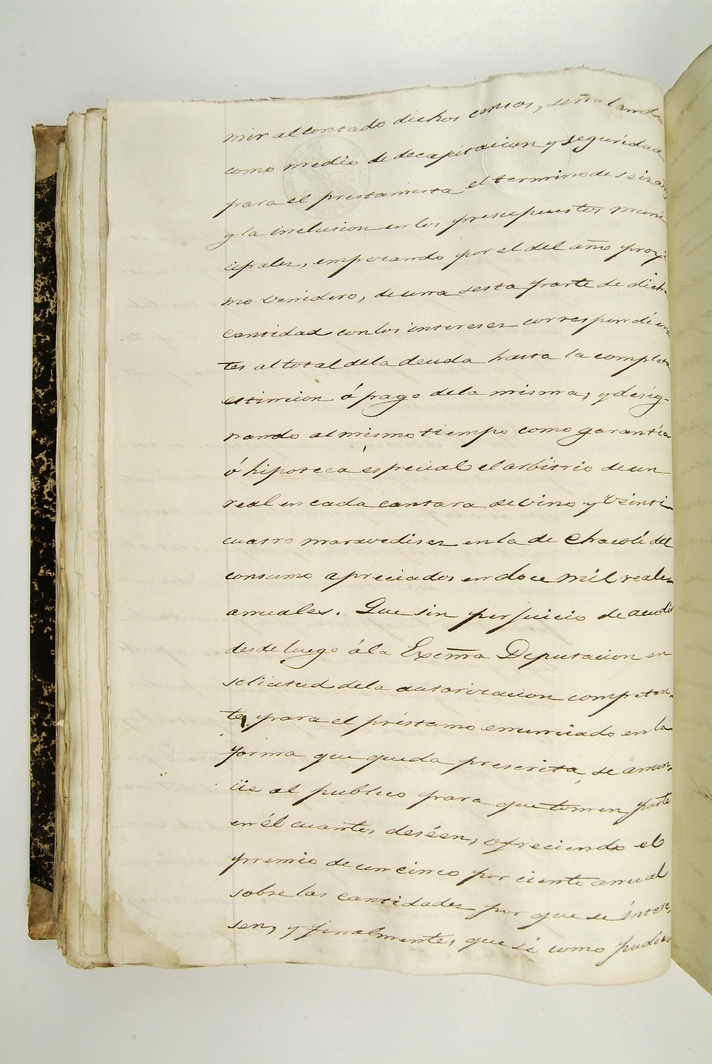 mir al contado dichos censos, señalando
como medio de decapitacion y seguridad
para el prestamista el termino de seis años
y la inclusion en los presupuestos muni
cipales, empezando por el del año proxi
mo venidero, de una sesta parte de dicha
cantidad con los intereses correspondien
tes al total de la deuda hasta la completa
estincion ó pago de la misma, y desig-
nando al mismo tiempo como garantia
ó hipoteca especial el arbitrio de un
real en cada cantara de vino y veinti
cuatro maravedises en la de Chacolí del
consumo apreciados en doce mil reales
anuales. Que sin perjuicio de acudir
desde luego á la Exc̃ma Diputacion en
solicitud de la autorizacion competen-
te para el préstamo enunciado en la
forma que queda prescrita, se anun
cie al publico para que tomen parte
en él cuantos deséen, ofreciendo el
premio de un cinco por ciento anual
sobre las cantidades por que se intere
sen, y finalmente, que si como pudiera